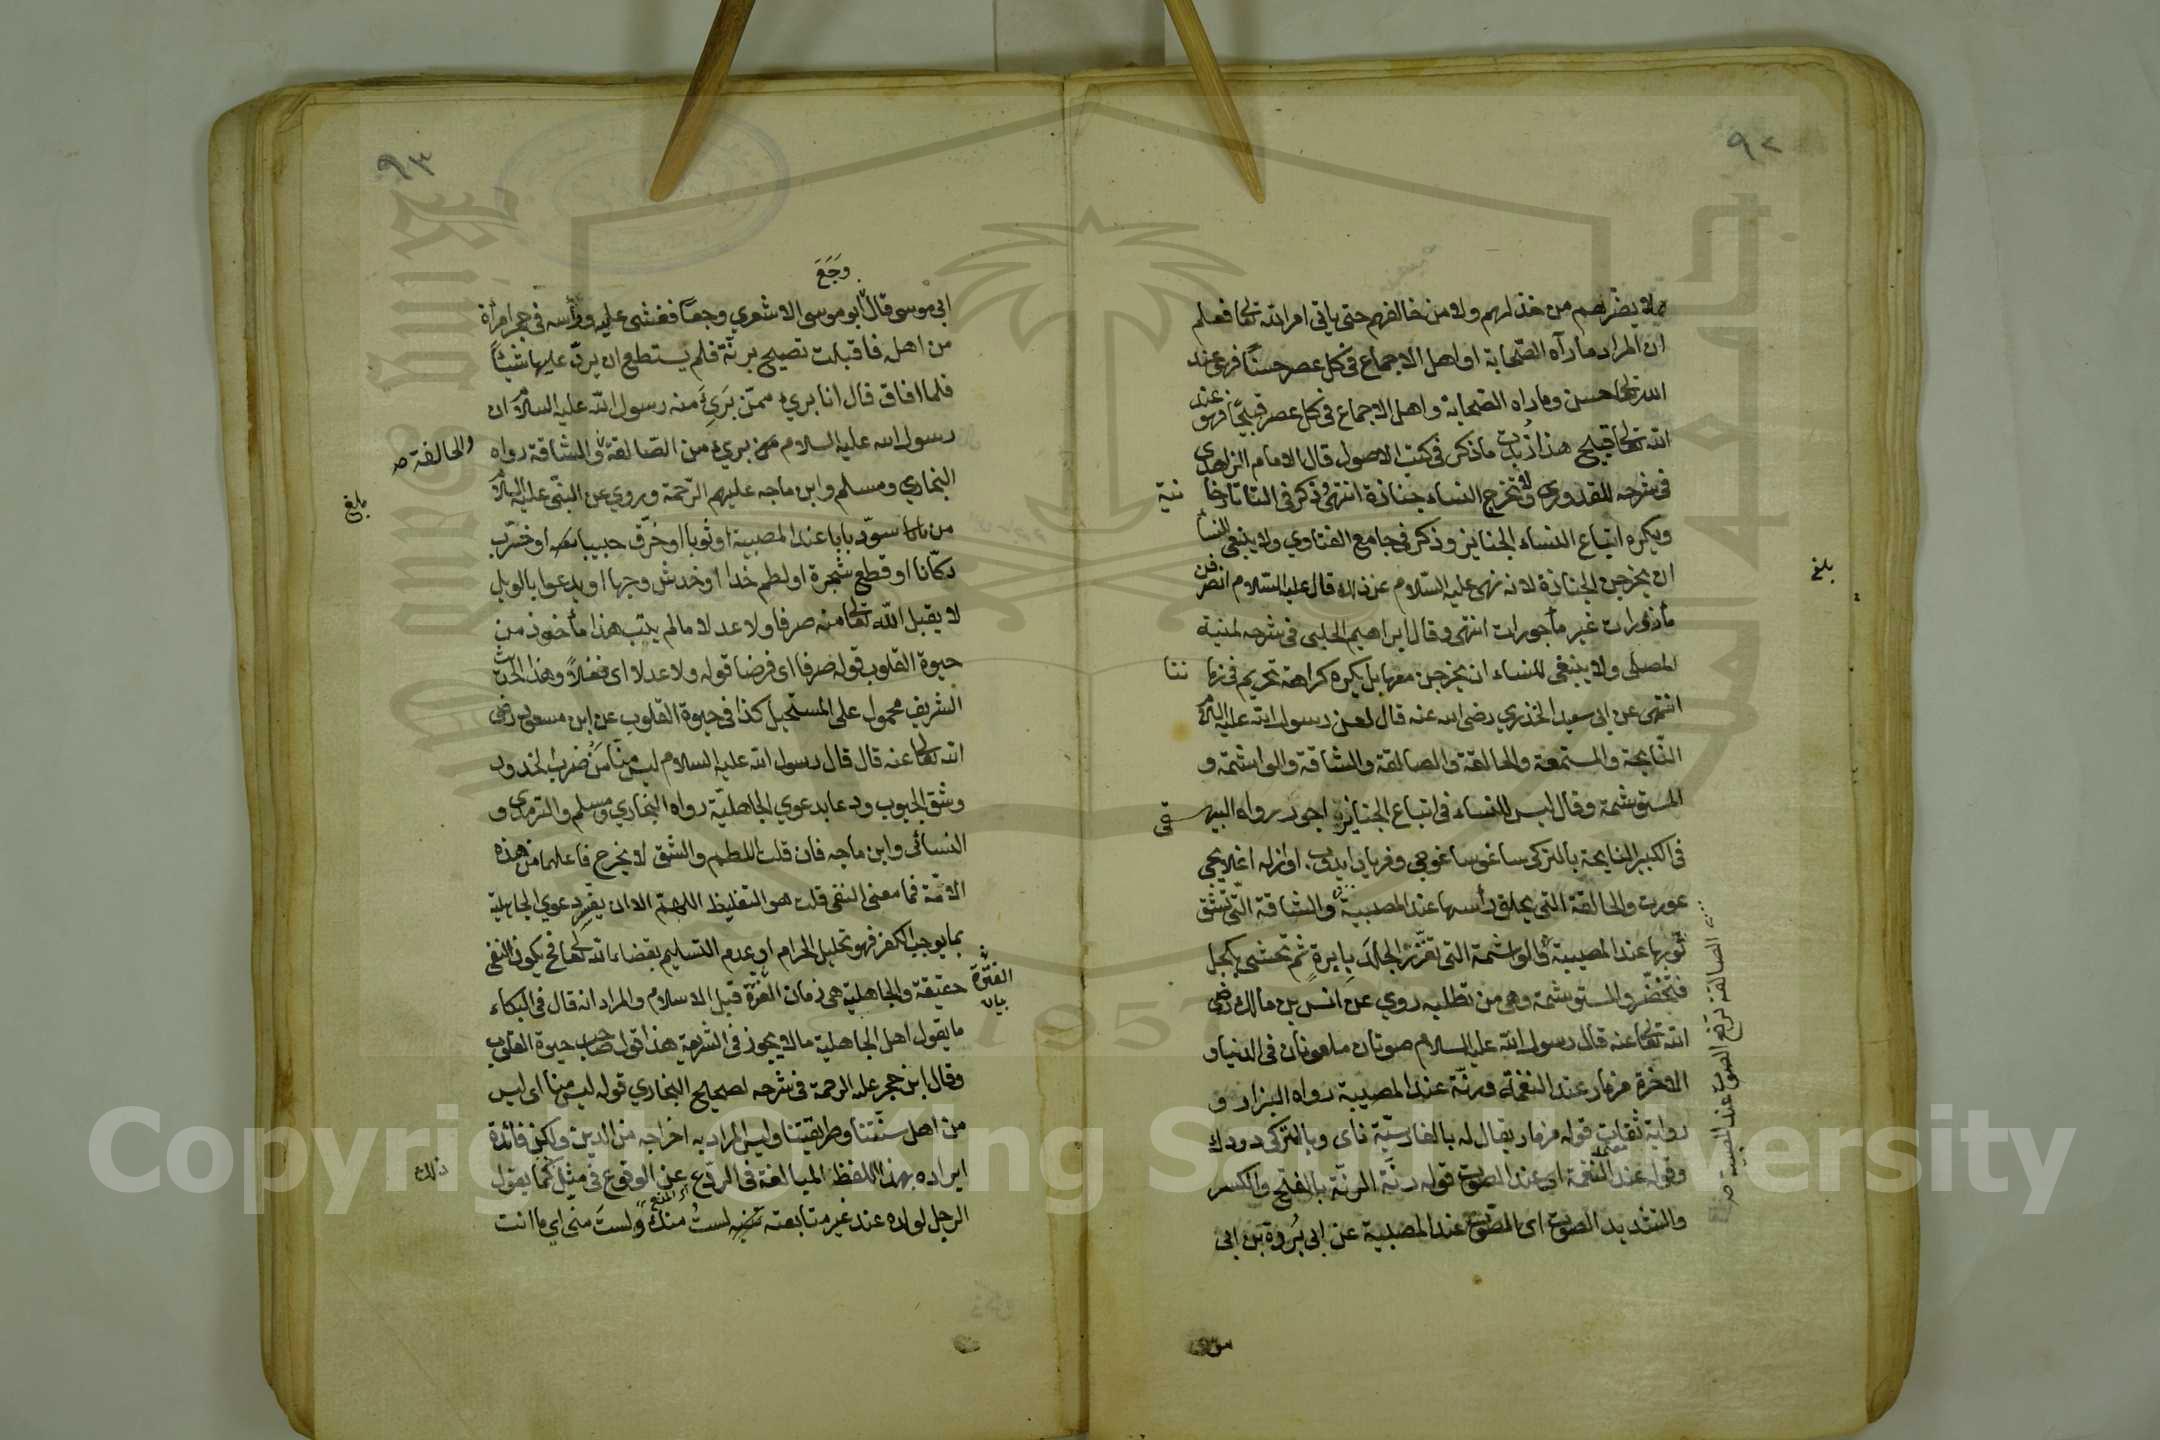 ٩٢
لا يضرهم من خذلهم ولا من خالفهم حتى ياتي امر الله تعالى فعلم
ان المراد ما رآه الصّحابة او اهل الاجماع في كل عصر حسنًا فهو عند
الله تعالى حسن وما راه الصحابة واهل الاجماع في كل عصر قبيحًا فهو عند
الله تعالى قبيح هذا زبدت ما ذكر في كتب الاصول قال الامام الزاهدي
في شرحه للقدوري ولا تخرج النساء جنازة انتهى وذكر في التاتارخانية
ويكره اتباع النساء الجنايز وذكر في جامع الفتاوي ولا ينبغي للنسا
ان يخرجن الجنازة لانه نهى عليه السّلام عن ذلك قال عليه السّلام انصرفن
مأذورات غير مأجورات انتهى وقال ابراهيم الحلبي في شرحه لمنية
المصلى ولا ينبغى للنساء ان يخرجن معها بل يكره كراهة تحريم في زماننا
انتهى عن ابي سعيد الخدري رضى الله عنه قال لعن رسول الله عليه السلام
النّايحة والمستمعة والحالقة والصالقة والشاقة والواشمة و
المستوشمة وقال ليس للنساء في اتباع الجنايز اجر رواه البيهقي
في الكبير النايحة بالتركى ساغوساغوجى وفرياد ايدوب اوازله اغلايجى
عورت والحالقة التى يحلق رأسها عند المصيبة والشاقة الّتى تشق
ثوبها عند المصيبة والواشمة التى تغرز الجلد بابرةٍ ثم تحشى بكحل
فتخضرّ والمستوشمة وهى من تطلبه روي عن انس بن مالك رضى
الله تعالى عنه قال رسول الله عليه السلام صوتان ملعونان في الدنيا و
الاخرة مزمار عند النغمة ورنّة عند المصيبة رواه البزار و
رواية ثقات قوله مزمار يقال له بالفارسيّة ناى وبالتركى دودك
وقوله عند النغمة اى عند الصوت قوله رنّة الرنّة بالفتح والكسر
والتشديد الصوت اى الصوت عند المصيبة عن ابي بُروة بن ابي
بلغ
الصالقة ترفع الصوت عند المصيبة صح
٩٣
وَجَعَ
ابي موسى قال ابو موسى الاشعري وجعًا فغشى عليه ورأسه في حجر امرأة
من اهله فاقبلت تصيح برنّة فلم يستطع ان يردّ عليها شيئًا
فلما افاق قال انا بريء ممّن بَرِئَ منه رسول الله عليه السلام ان
رسول الله عليه السلام بريء من الصّالقة والشاقة رواه
والحالقة صح
البخاري ومسلم وابن ماجه عليهم الرّحمة وروي عن النبّى عليه السلام
بلغ
من سوّد بابا عند المصيبة او ثوبا او خرّق حبيبا او خرّب
دكّانا او قطع شجرة او لطم خدا او خدش وجها او يدعوا بالويل
لا يقبل الله تعالى منه صرفا ولا عدلا ما لم يتب هذا مأخوذ من
حيوة القلوب قوله صرفا اى فرضا قوله ولا عدلا اى فعلاً وهذا الحديث
الشريف محمول على المستحيل كذا في حيوة القلوب عن ابن مسعود رضى
الله تعالى عنه قال قال رسول الله عليه السلام ليس منّا من ضرب الخدود
وشق الجيوب ودعا بدعوي الجاهليّة رواه البخاري ومسلم والترمذى و
النسائى وابن ماجه فان قلت اللطم والشق لا يخرج فاعلهما من هذه
الامّة فما معنى النفى قلت هو التغليظ اللهمّ الا ان يفسّر دعوي الجاهلية
بما يوجب الكفر فهو تحليل الحرام او عدم التسليم بقضاء الله تعالى فح يكون النفى
حقيقة والجاهلية هى زمان الفترة قبل الاسلام والمراد انه قال في البكاء
الفَتَرة بيان
ما يقول اهل الجاهلية ما لا يجوز في الشريعة هذا قول صاحب حيوة القلوب
وقال ابن حجر عليه الرحمة في شرحه لصحيح البخاري قوله ليس منا اى ليس
من اهل سنّتنا وطريقتنا وليس المراد به اخراجه من الدين ولكن فائدة
ايراده بهذا اللفظ المبالغة في الردّع عن الوقوع في مثل ذلك كما يقول
الرجل لولده عند غير متابعته لستُ منك ولستَ منّى اي ما انت
Copyright © King Saud University
1957